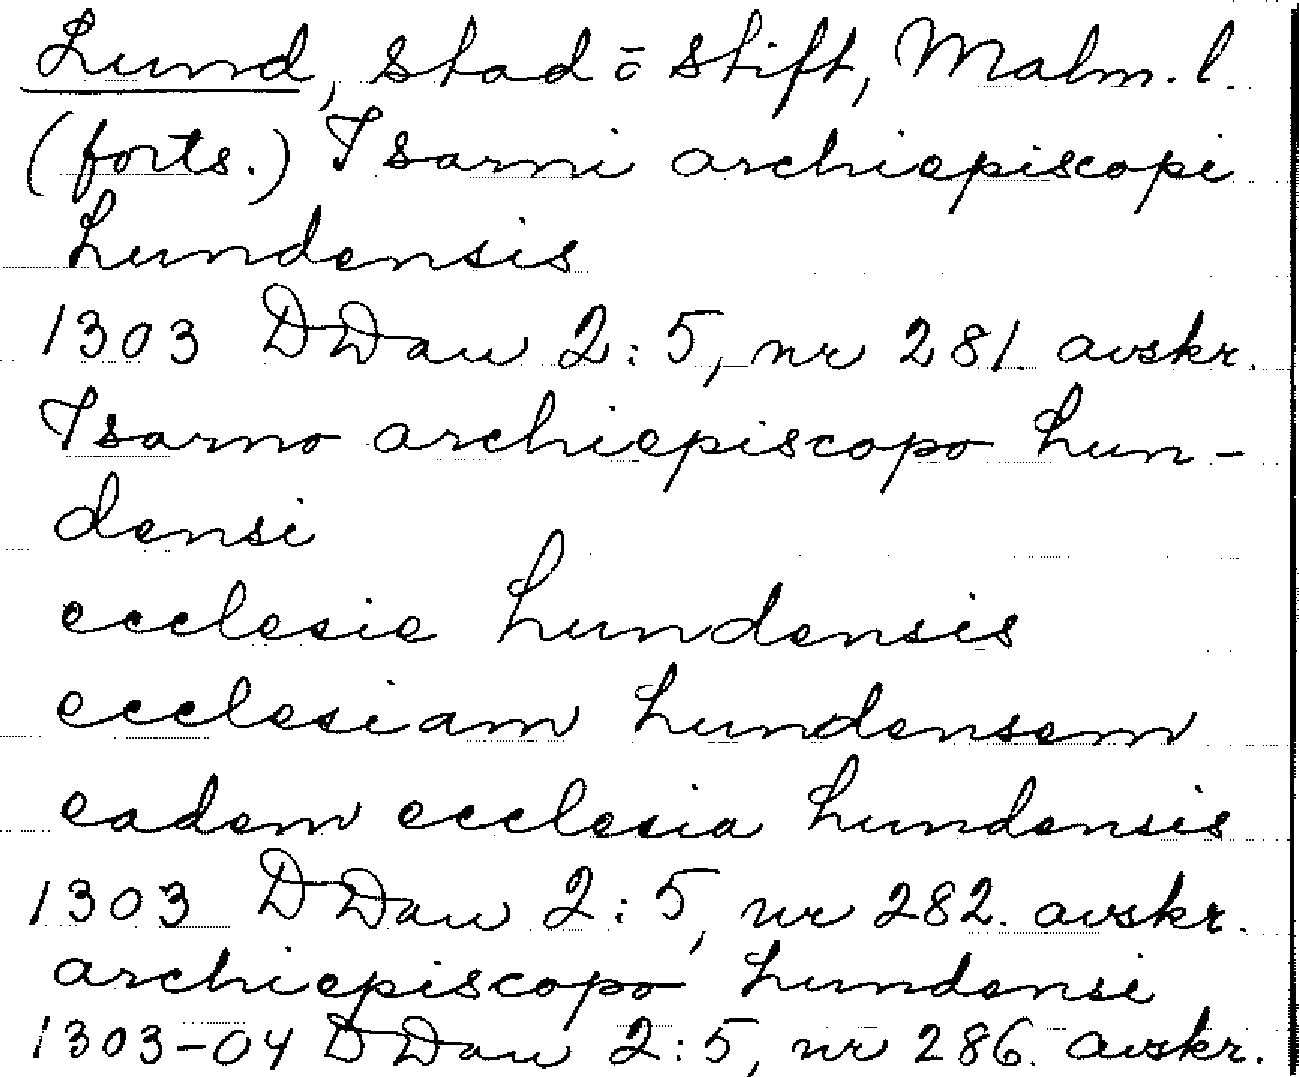 Lund, stad o stift, Malm. l.
(forts.) Isarni archiepiscopi
Lundensis
1303 DDan 2:5, nr 281. avskr.
Isarno archiepiscopo Lun-
densi
ecclesie Lundensis
ecclesiam Lundensem
eadem ecclesia Lundensis
1303 DDan 2:5, nr 282. avskr.
archiepiscopo Lundensi
1303-04 DDan 2:5, nr 286. avskr.